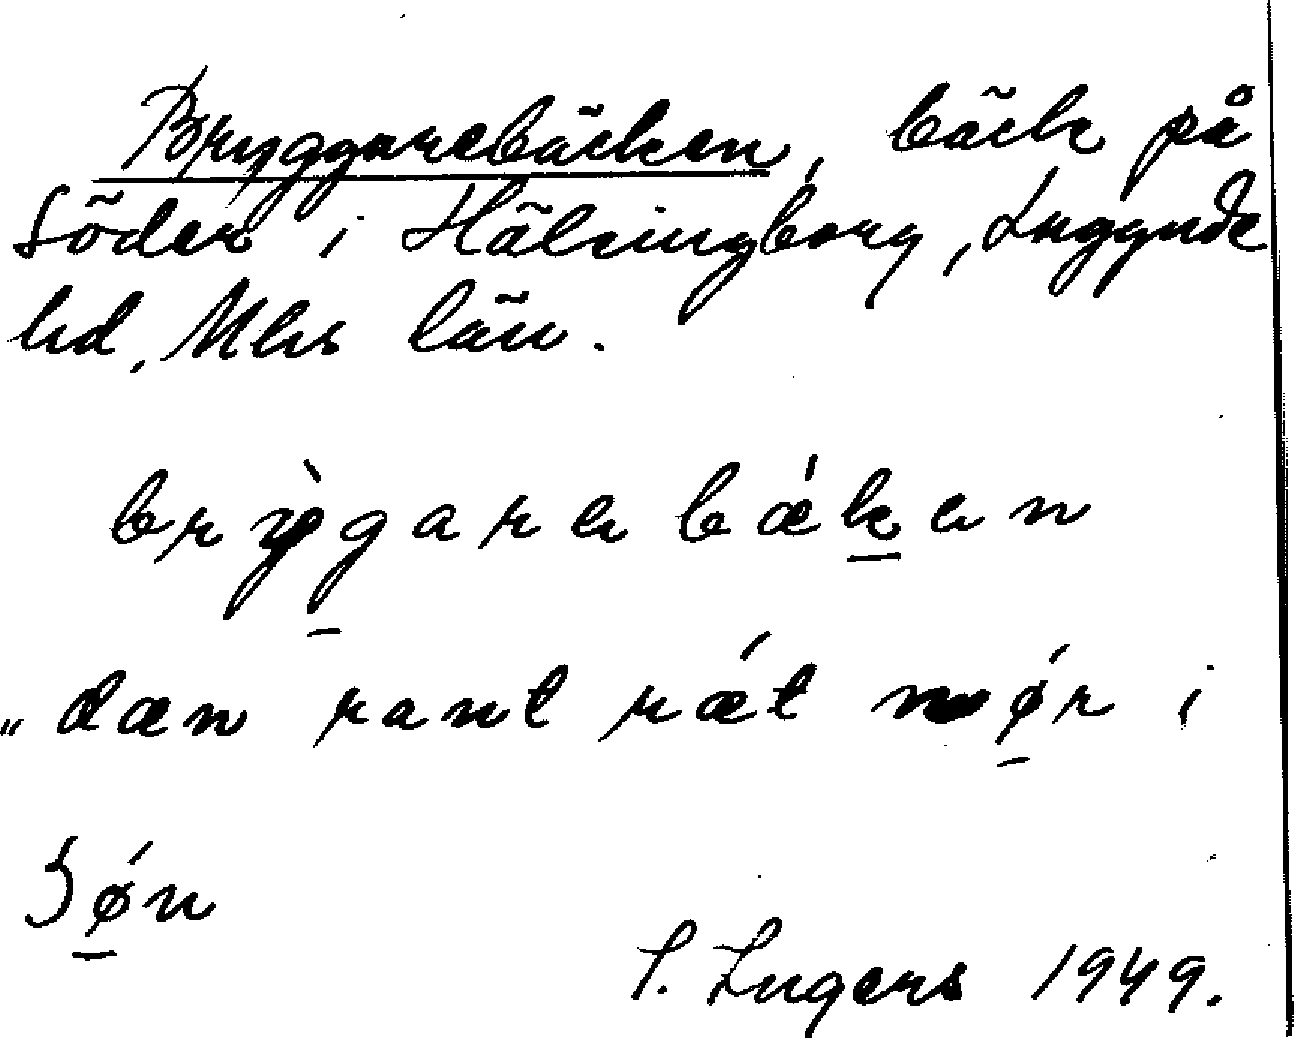 Bryggarebäcken, bäck på
Söder i Hälsingborg, Luggude
hd, Mlhs län.
brỳg̲arebæ̍k̲en
„dæn rant rǽt nǿ̲r i
Sǿ̲n
S. Ingers 1949.